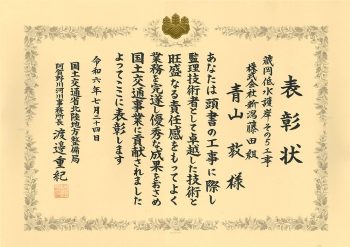 表彰状
蔵岡低水護岸その5工事
株式会社新潟藤田組
青山敦様
あなたは頭書の工事に際し
監理技術者として卓越した技術と
旺盛なる責任感をもってよく
業務を完遂し優秀な成果をおさめ
国土交通事業に貢献されました
よってここに表彰します
令和六年七月二十四日
国土交通省北陸地方整備局
阿賀野川河川事務所長 渡邊重紀